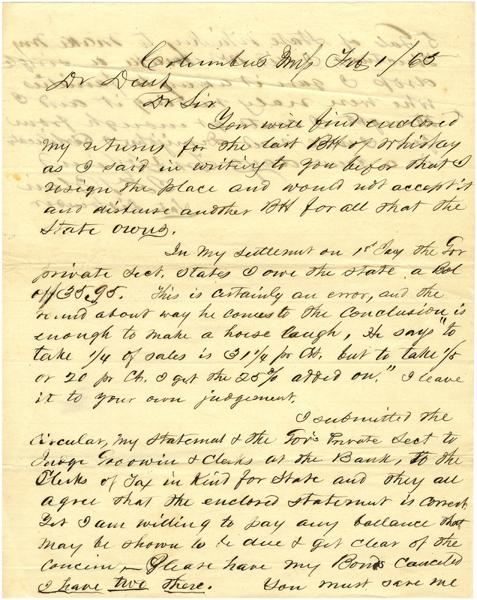 Columbus Miss Feb 1/65
Dr Dent
Dr Sir
You will find enclosed
my returns for the last BH of Whiskey
as I said in writing to you befor that I
resign the place and would not accept it
and disburse another BH for all that the
State owns.
In my settlement on 1st Jany the Gov
private sect. states I owe the state, a Bal
of 135,95. This is certainly an error, and the
round about way he comes to the conclusion is
enough to make a horse laugh, He says "to
take 1/4 of sales is 31 1/4 pr Ct. but to take 1/5
or 20 pr Ct. I get the 25% added on." I leave
it to your own judgement.
I submitted the
Circular, my statement & the Gov's Private Sect to
Judge Goodwin & Clerks at the Bank, to the
Clerks of Tax in Kind for State and they all
agree that the enclosed statement is correct.
Yet I am willing to pay any ballance that
may be shown to be due & get clear of the
concern — Please have my Bonds canceled
I have two there. You must save me